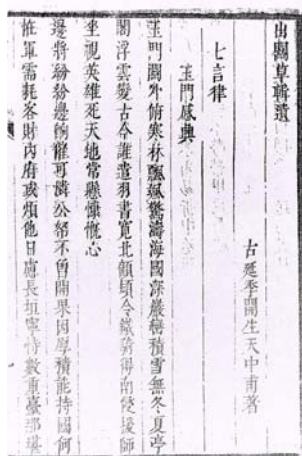 出關草輯遺
古延季開生天中甫著
七言律
玉門感興
玉門關外俯寒林飄颯驚濤海國深巖積雪無冬夏亭
閣浮雲變古今誰遣羽書寬北顧頓令鐵騎得南侵援師
坐視英雄死天地常懸慷慨心
邊將紛紛邊餉可憐公帑不曾開果因學積能持國何
軍需耗客財內府或煩他日慮長垣寧恃數重臺那堪